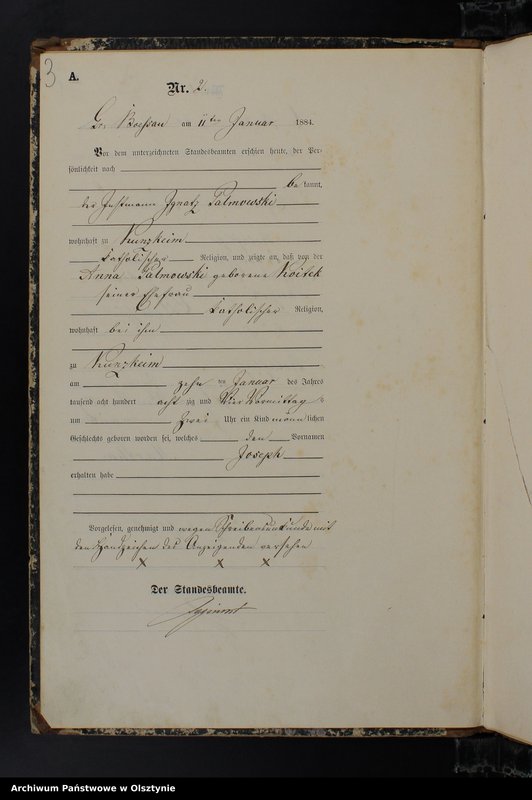 3
A.
Nr. 2.
Gr. Boessau am 11ten Januar 1884.
Vor dem unterzeichneten Standesbeamten erschien heute, der Per-
sönlichkeit nach
be kannt,
der Instmann Ignatz Palmowski
wohnhaft zu Kunzkeim
katholischer Religion, und zeigte an, daß von der
Anna Palmowski geborene Koitek
seiner Ehefrau
katholischer Religion,
wohnhaft bei ihm
zu Kunzkeim
am zehn ten Januar des Jahres
tausend acht hundert acht zig und Vier Vormittag s
um zwei Uhr ein Kind männ lichen
Geschlechts geboren worden sei, welches den Vornamen
Joseph
erhalten habe
Vorgelesen, genehmigt und wegen Schreibensunkunde mit
den Handzeichen des Anzeigenden versehen
x x x
Der Standesbeamte.
Archiwum Państwowe w Olsztynie